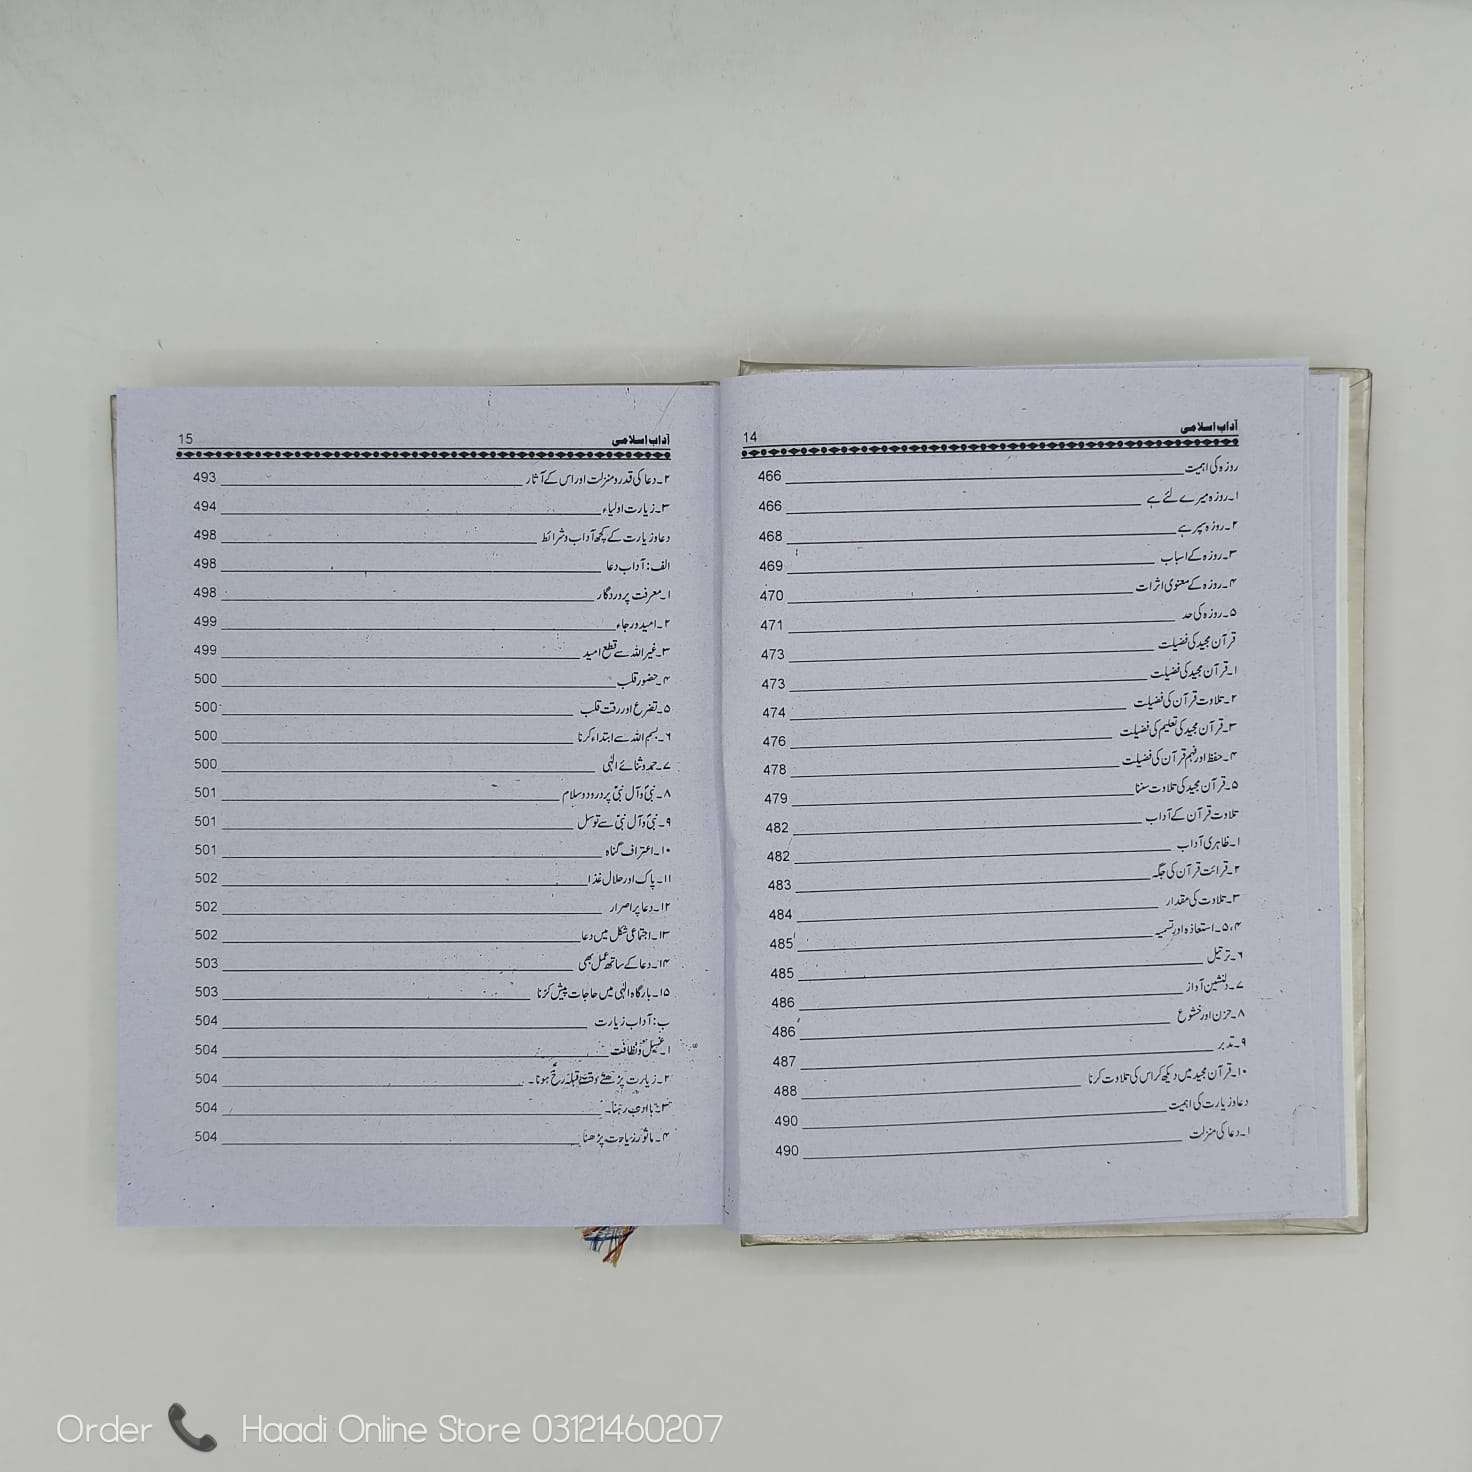 آداب اسلامی 14
روزہ کی اہمیت 466
۱۔روزہ میرے لئے ہے 466
۲۔روزہ سپر ہے 468
۳۔روزہ کے اسباب 469
۴۔روزہ کے معنوی اثرات 470
۵۔روزہ کی حد 471
قرآن مجید کی فضیلت 473
۱۔قرآن مجید کی فضیلت 473
۲۔تلاوت قرآن کی فضیلت 474
۳۔قرآن مجید کی تعلیم کی فضیلت 476
۴۔حفظ اور فہم قرآن کی فضیلت 478
۵۔قرآن مجید کی تلاوت سننا 479
تلاوت قرآن کے آداب 482
۱۔ظاہری آداب 482
۲۔قرائت قرآن کی جگہ 483
۳۔تلاوت کی مقدار 484
۴،۵۔استعاذہ اور تسمیہ 485
۶۔ترتیل 485
۷۔دلنشین آواز 486
۸۔حزن اور خشوع 486
۹۔تدبر 487
۱۰۔قرآن مجید میں دیکھ کر اس کی تلاوت کرنا 488
دعا و زیارت کی اہمیت 490
۱۔دعا کی منزلت 490
آداب اسلامی 15
۲۔دعا کی قدر و منزلت اور اس کے آثار 493
۳۔زیارت اولیاء 494
دعا و زیارت کے کچھ آداب و شرائط 498
الف: آداب دعا 498
۱۔معرفت پروردگار 498
۲۔امید و رجاء 499
۳۔غیر اللہ سے قطع امید 499
۴۔حضور قلب 500
۵۔تضرع اور رقت قلب 500
۶۔بسم اللہ سے ابتداء کرنا 500
۷۔حمد و ثنائے الٰہی 500
۸۔نبیؐ و آل نبیؐ پر درود و سلام 501
۹۔نبیؐ و آل نبیؐ سے توسل 501
۱۰۔اعتراف گناہ 501
۱۱۔پاک اور حلال غذا 502
۱۲۔دعا پر اصرار 502
۱۳۔اجتماعی شکل میں دعا 502
۱۴۔دعا کے ساتھ عمل بھی 503
۱۵۔بارگاہ الٰہی میں حاجات پیش کرنا 503
ب: آداب زیارت 504
۱۔غسل و نظافت 504
۲۔زیارت پڑھتے وقت قبلہ رخ ہونا۔ 504
۳۔با ادب رہنا۔ 504
۴۔ماثور زیارت پڑھنا 504
Order Haadi Online Store 03121460207